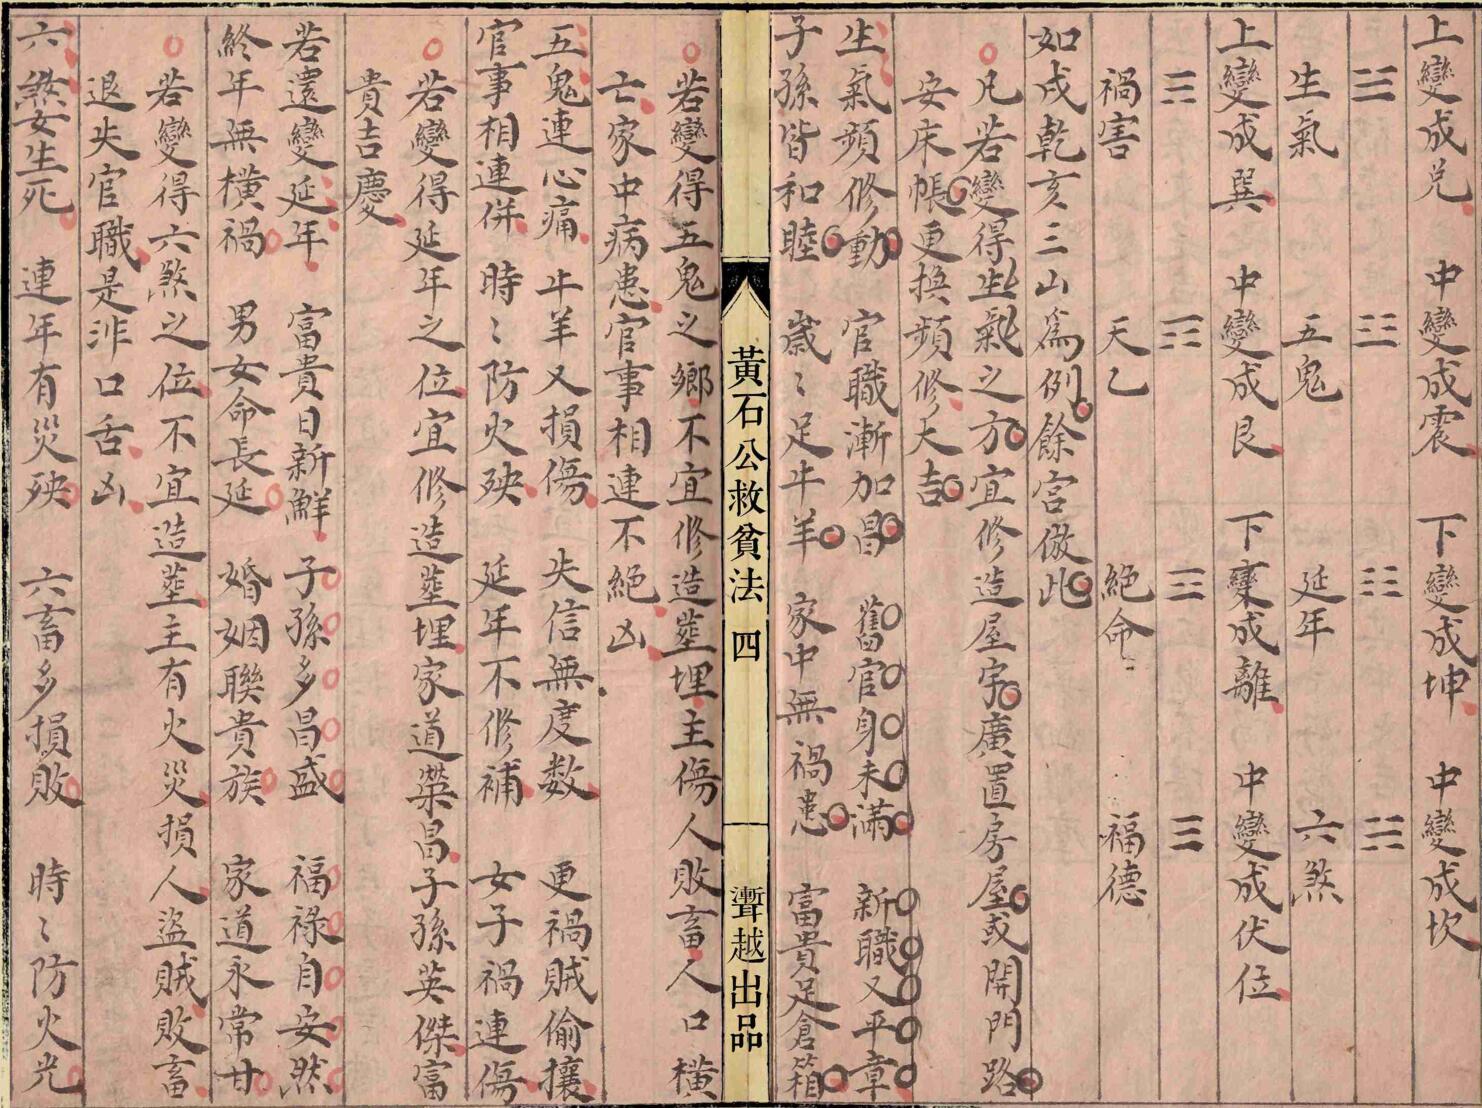 上變成兌　中變成震　下變成坤　中變成坎
☱　☳　☷　☵
生氣　五鬼　延年　六煞
上變成巽　中變成艮　下變成離　中變成伏位
☴　☶　☲　☰
禍害　天乙　絕命　福德
如戌乾亥三山為例餘宮倣此
凡若變得生氣之方宜修造屋宇廣置房屋或開門路
安床帳更換頻修大吉
生氣頻修動　官職漸加昌　舊官身未滿　新職又平章
子孫皆和睦　歲〻足牛羊　家中無禍患　富貴足倉箱
黃石公救貧法　四　
聻越出品
若變得五鬼之鄉不宜修造塟埋主傷人敗畜人口橫
亡家中病患官事相連不絕凶
五鬼連心痛　牛羊又損傷　失信無度数　更禍賊偷攘
官事相連併　時〻防火殃　延年不修補　女子禍連傷
若變得延年之位宜修造塟埋家道榮昌子孫英傑富
貴吉慶
若還變延年　富貴日新鮮　子孫多昌盛　福祿自安然
終年無橫禍　男女命長延　婚姻聯貴族　家道永常甘
若變得六煞之位不宜造塟主有火災損人盜賊敗畜
退失官職是非口舌凶
六煞女生死　連年有災殃　六畜多損敗　時〻防火光